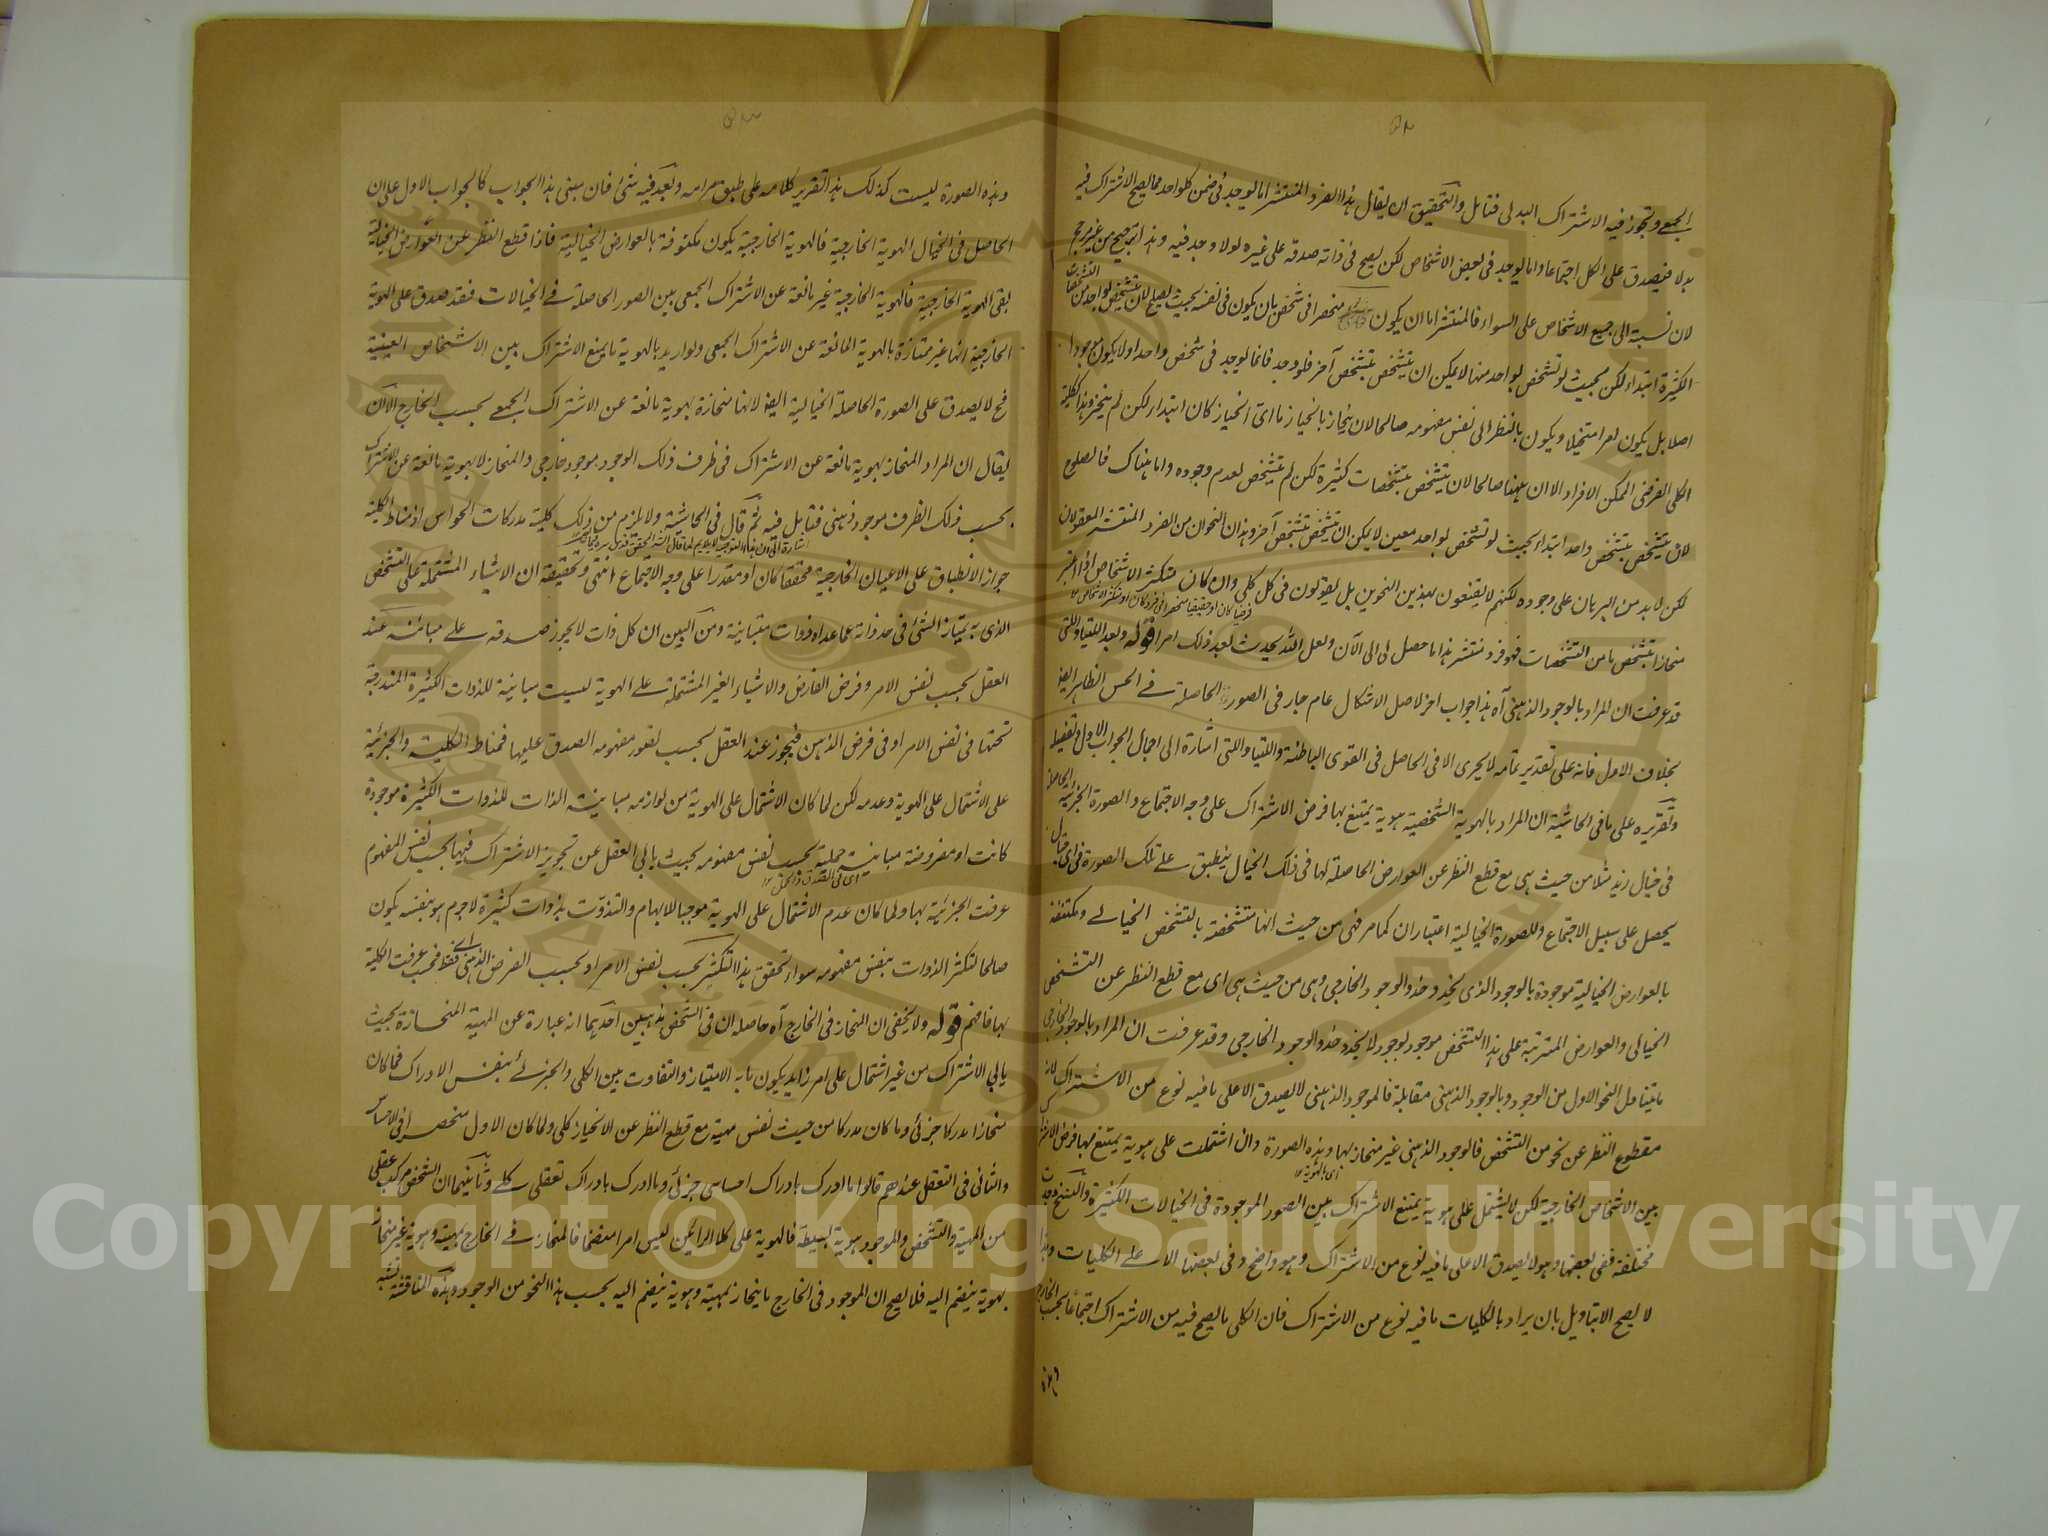 الجمعي وتجوز فيه الاشتراك البدلي فتأمل والتحقيق ان يقال هذا الفرد المنتشر اما يوجد في ضمن كل واحد مما يصح الاشتراك فيه
بدلا فيصدق على الكل اجتماعا واما يوجد في بعض الاشخاص لكن يصح في ذاته صدقه على غيره لولا وجد فيه وهذا ترجيح من غير مرجح
لان نسبته الى جميع الاشخاص على السواء فالمنتشر اما ان يكون منحصرا في شخص بان يكون في نفسه بحيث يصلح لان يتشخص بواحد من التشخصات
الكثيرة ابتداء لكن بحيث لو تشخص بواحد منها لا يمكن ان يتشخص بتشخص آخر فلو وجد فانما يوجد في شخص واحد اولا يكون موجودا
اصلا بل يكون امرا متخيلا ويكون بالنظر الى نفس مفهومه صالحا لان ينحاز بانحياز ما اي انحياز كان ابتداء لكن لم ينحز وهذا كالكلية
الكلي الفرضي الممكن الافراد الا ان ههنا صالحا لان يتشخص بتشخصات كثيرة لكن لم يتشخص لعدم وجوده واما هناك فالصلوح
لان يتشخص بتشخص واحد ابتداء بحيث لو تشخص بواحد معين لا يمكن ان يتشخص بتشخص آخر وهذان النحوان من الفرد المنتشر المعقولان
لكن لا بد من البرهان على وجوده لكنهم لا يقنعون بهذين النحوين بل يقولون في كل كلي وان كان متكثر الاشخاص اذا اعتبر
فرضيا كان او حقيقيا منحصرا في فرد كان او متكثر الاشخاص ١٢
منحازا بتشخص ما من التشخصات فهو فرد منتشر هذا ما حصل لي الى الآن ولعل الله يحدث بعد ذلك امرا قوله وبعد اللتيا واللتي
قد عرفت ان المراد بالوجود الذهني آه هذا جواب آخر لاصل الاشكال عام جار في الصور الحاصلة في الحس الظاهر ايضا
بخلاف الاول فانه على تقدير تمامه لا يجري الا في الحاصل في القوى الباطنة واللتيا واللتي اشارة الى اجمال الجواب الاول وتفصيله
وتقريره على ما في الحاشية ان المراد بالهوية الشخصية هوية يمتنع بها فرض الاشتراك على وجه الاجتماع والصورة الجزئية الحاصلة
في خيال زيد مثلا من حيث هي مع قطع النظر عن العوارض الحاصلة لها في ذلك الخيال ينطبق على تلك الصورة في اي خيال
يحصل على سبيل الاجتماع وللصورة الخيالية اعتباران كما مر فهي من حيث انها متشخصة بالتشخص الخيالي ومكتنفة
بالعوارض الخيالية موجودة بالوجود الذي يحذو حذو الوجود الخارجي وهي من حيث هي اي مع قطع النظر عن التشخص
الخيالي والعوارض المترتبة على هذا التشخص موجود بوجود لا يحذو حذو الوجود الخارجي وقد عرفت ان المراد بالوجود الخارجي
ما يتناول النحو الاول من الوجود وبالوجود الذهني مقابله فالموجود الذهني لا يصدق الا على ما فيه نوع من الاشتراك لانه
مقطوع النظر عن نحو من التشخص فالوجود الذهني غير منحاز بها وهذه الصورة وان اشتملت على هوية يمتنع بها فرض الاشتراك
اي الهوية ١٢
بين الاشخاص الخارجية لكن لا يشتمل على هوية يمتنع الاشتراك بين الصور الموجودة في الخيالات الكثيرة والنسخ وجدت
مختلفة ففي بعضها وهو لا يصدق الا على ما فيه نوع من الاشتراك وهو واضح وفي بعضها الا على الكليات وهذا
لا يصح الا بتأويل بان يراد بالكليات ما فيه نوع من الاشتراك فان الكلي ما يصح فيه من الاشتراك اجتماعا بحسب الخارج
وهذه
وهذه الصورة ليست كذلك هذا تقرير كلامه على طبق مرامه وبعد فيه شيء فان مبنى هذا الجواب كالجواب الاول على ان
الحاصل في الخيال الهوية الخارجية فالهوية الخارجية يكون مكتنوفة بالعوارض الخيالية فاذا قطع النظر عن العوارض الخيالية
بقي الهوية الخارجية فالهوية الخارجية غير مانعة عن الاشتراك الجمعي بين الصور الحاصلة في الخيالات فقد صدق على الهوية
الخارجية انها غير ممتازة بالهوية المانعة عن الاشتراك الجمعي ولو اريد بالهوية ما يمنع الاشتراك بين الاشخاص العينية
فح لا يصدق على الصورة الحاصلة الخيالية ايضا لانها منحازة بهوية مانعة عن الاشتراك الجمعي بحسب الخارج الا ان
يقال ان المراد المنحاز بهوية مانعة عن الاشتراك في ظرف ذلك الوجود موجود خارجي والمنحاز لا بهوية مانعة عن الاشتراك
بحسب ذلك الظرف موجود ذهني فتأمل فيه ثم قال في الحاشية ولا يلزم من ذلك كلية مدركات الحواس اذ مناط الكلية
جواز الانطباق على الاعيان الخارجية محققا كان او مقدرا على وجه الاجتماع انتهى وتحقيقه ان الاشياء المشتملة على التشخص
الذي به يمتاز الشيء في حد ذاته عما عداه ذوات متباينة ومن البين ان كل ذات لا يجوز صدقه على مباينه عند
العقل بحسب نفس الامر وفرض الفارض والاشياء الغير المشتملة على الهوية ليست مباينة للذوات الكثيرة المندرجة
تحتها في نفس الامر او في فرض الذهن فيجوز عند العقل بحسب تصور مفهومه الصدق عليها فمناط الكلية والجزئية
على الاشتمال على الهوية وعدمه لكن لما كان الاشتمال على الهوية من لوازمه مباينة الذات للذوات الكثيرة موجودة
كانت او مفروضة مباينة حملية بحسب نفس مفهومه بحيث يأبى العقل عن تجويز الاشتراك فيها بحسب نفس المفهوم
اي في الصدق والحمل ١٢
عرفت الجزئية بها ولما كان عدم الاشتمال على الهوية موجبا للابهام والتذوت بذوات كثيرة لا جرم هو بنفسه يكون
صالحا لتكثر الذوات بنفس مفهومه سواء تحقق هذا التكثر بحسب نفس الامر او بحسب الفرض الذهني فقط فحسب عرفت الكلية
بها فافهم قوله ولا يخفى ان المنحاز في الخارج آه حاصله ان في الشخص مذهبين احدهما انه عبارة عن المهية المنحازة بحيث
يأبى الاشتراك من غير اشتمال على امر زايد يكون ما به الامتياز والتفاوت بين الكلي والجزئي بنفس الادراك فما كان
منحازا مدركا جزئي وما كان مدركا من حيث نفس مهية مع قطع النظر عن الانحياز كلي ولما كان الاول منحصرا في الاحساس
والثاني في التعقل عندهم قالوا ما ادرك بادراك احساسي جزئي وما ادرك بادراك تعقلي كلي وثانيهما ان الشخص مركب عقلي
من المهية والتشخص والموجود هوية بسيطة فالهوية على كلا الرأيين ليس امرا منضما فالمنحاز في الخارج بمهية وهوية غير منحاز
بهوية ينضم اليه فلا يصح ان الموجود في الخارج ما ينحاز بمهية وهوية ينضم اليه بحسب هذا النحو من الوجود وهذه المناقشة